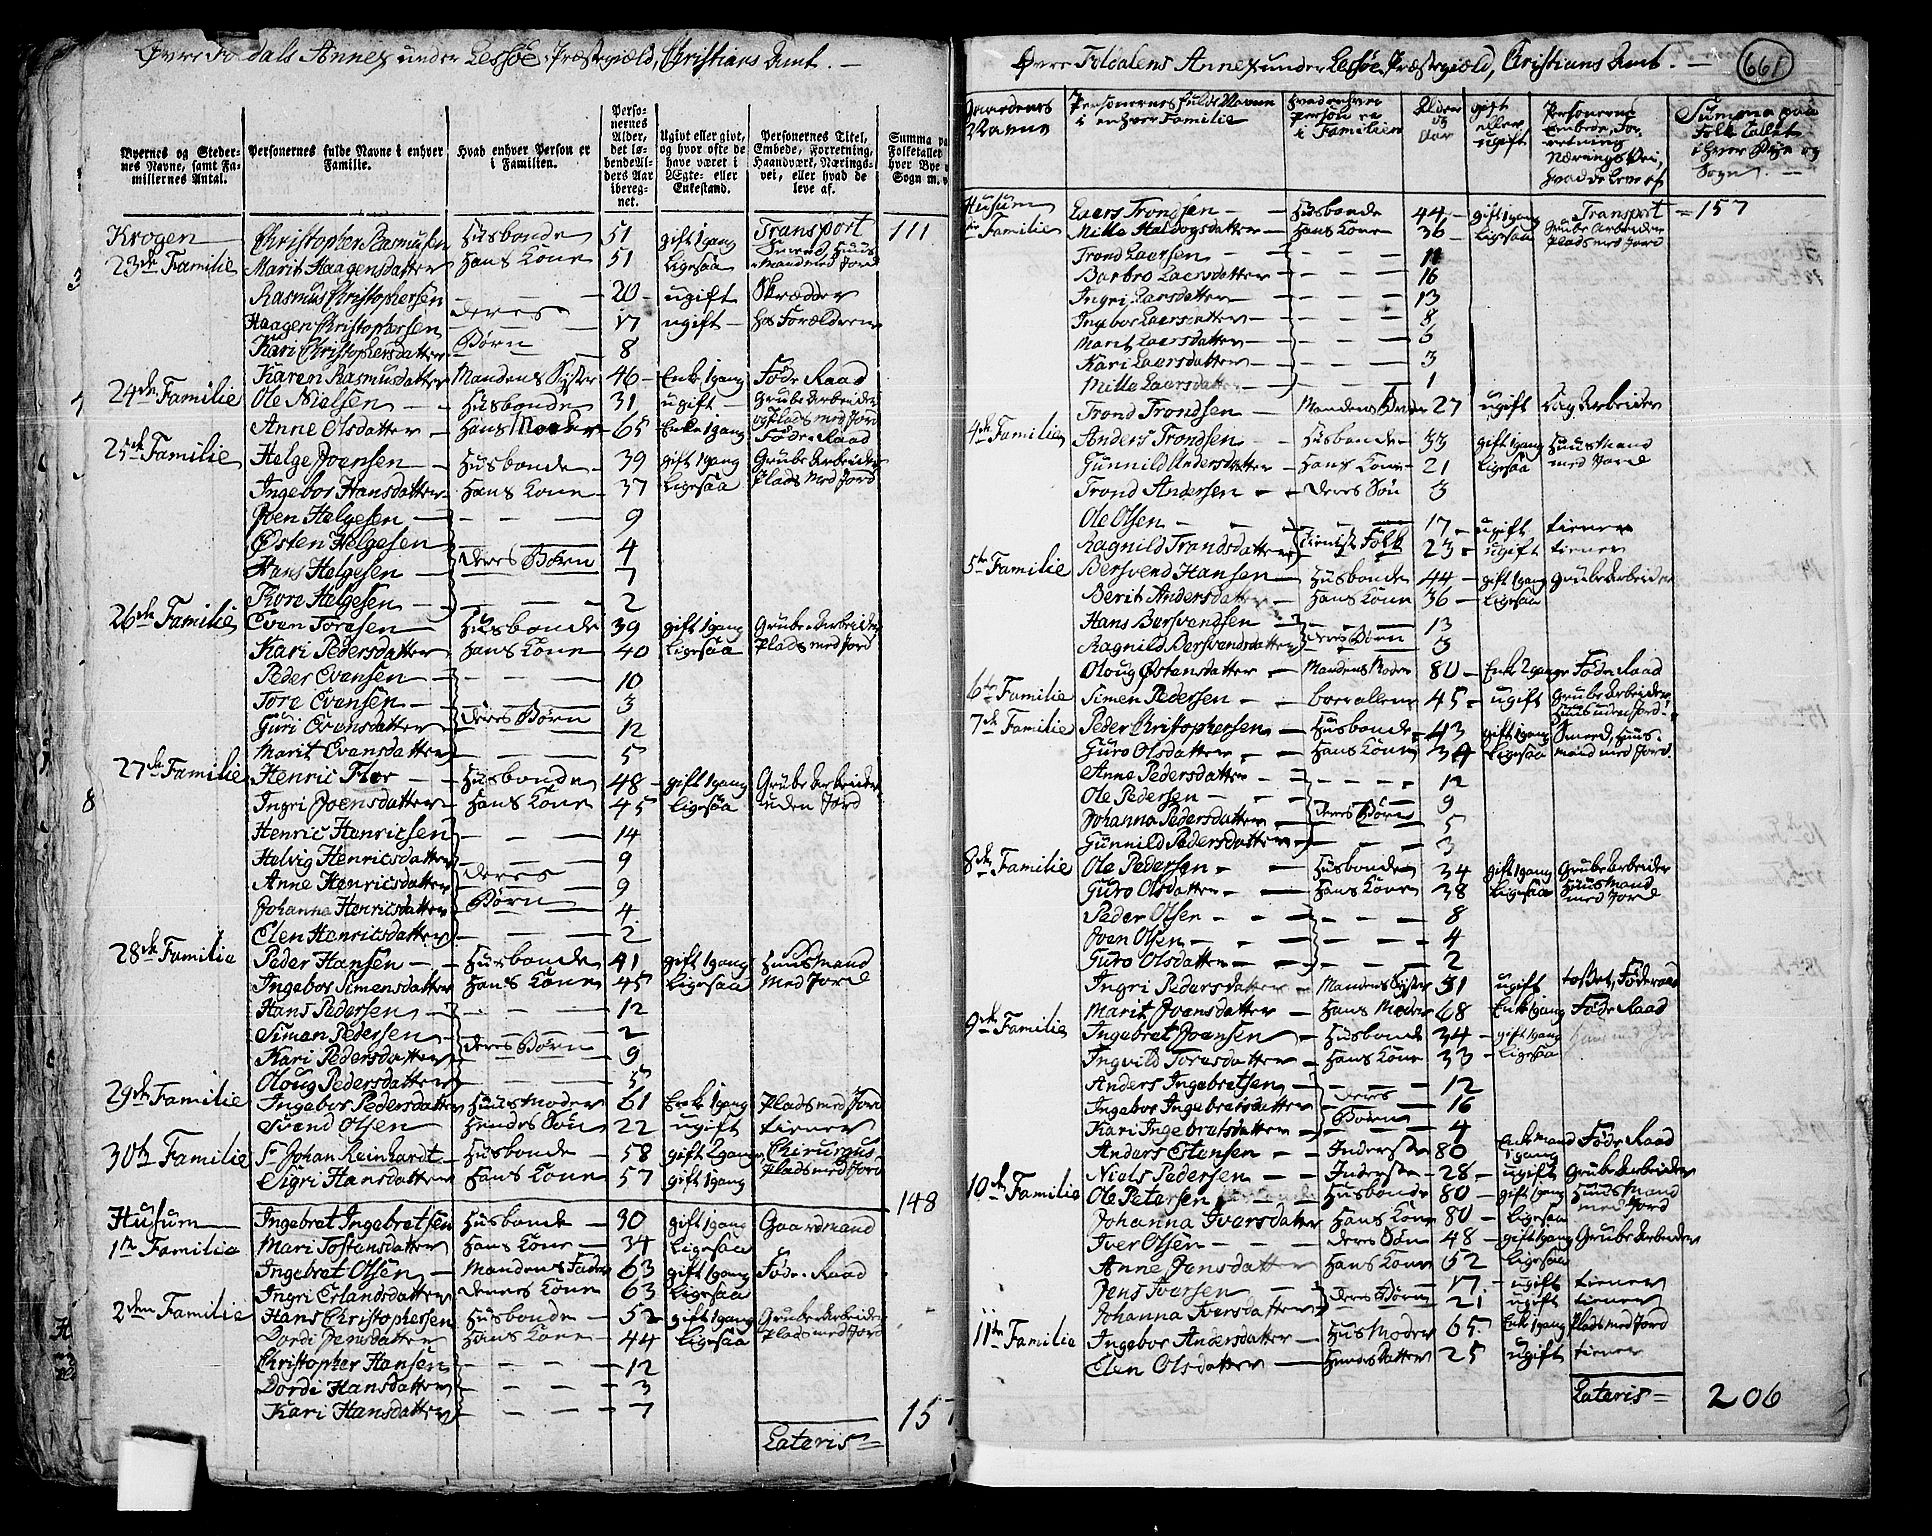 Øvre Foldals Annex under Lessøe Præstegield, Christians Amt. —
Byernes og Stedernes Navne, samt Familiernes Antal.
Personernes fulde Navne i enhver Familie.
Hvad enhver Person er i Familien.
Personernes Alder, det løbende Alders Aar iberegnet.
Ugivt eller givt, og hvor ofte de have været i Ægte- eller Enkestand.
Personernes Titel, Embede, Forretning, Haandværk, Næringsvei, eller hvad de leve af.
Transport 111
Krogen Christopher Rasmusen Husbonde 51 gift 1 gang
23de Familie Marit Haagensdatter Hans Kone 51 Ligesaa Mand med Jord
Rasmus Christophersen — 20 — ugift Skrædder
Haagen Christophersen deres 17 ugift — hos Forældrene
Kari Christophersdatter Børn 8
Karen Rasmusdatter Mandens Syster 46 — Enke 1 gang Føde Raad
24de Familie Ole Nielsen — Husbonde 31 ugift — Grube Arbeider
Anne Olsdatter — Hans Moder — 65 Enke 1 gang og Plads med Jord Føde Raad
25de Familie Helge Joensen — Husbonde 39 gift 1 gang Grube Arbeider
Ingebor Hansdatter Hans Kone 37 Ligesaa Plads med Jord
Joen Helgesen — — — 9
Østen Helgesen 4
Hans Helgesen — deres Børn 7
Tore Helgesen — — 2
26de Familie Even Toresen Husbonde 39 gift 1 gang Grube Arbeider
Kari Pedersdatter Hans Kone 40 Ligesaa Plads med Jord
Peder Evensen — — 10
Tore Evensen 3
Guri Evensdatter deres Børn 12
Marit Evensdatter — — 5
27de Familie Henric Flor — Husbonde 48 — gift 1 gang Grube Arbeider
Ingri Joensdatter Hans Kone 45 Ligesaa uden Jord
Henric Henricsen — — 14
Helvig Henricsdatter 9
Anne Henricsdatter deres 9
Johanna Henricsdatter Børn 4
Elen Henricsdatter — — 2
28de Familie Peder Hansen — Husbonde 41 gift 1 gang Huusmand
Ingebor Simensdatter Hans Kone 45 Ligesaa med Jord
Hans Pedersen — — 12
Simen Pedersen — 2
Kari Pedersdatter deres Børn 9
Oloug Pedersdatter — — 5
29de Familie Ingebor Pedersdatter Huusmoder 61 Enke 1 gang Plads med Jord
Svend Olsen Hendes Søn 22 ugift tiener
30te Familie F. Johan Reinhardt — Husbonde — 58 gift 2 gange Chirurgus
Sigri Hansdatter Hans Kone 57 gift 1 gang Plads med Jord
148
Husum Ingebret Ingebretsen Husbonde — 30 gift 1 gang Gaardmand
1te Familie Mari Tostensdatter Hans Kone — 34 Ligesaa
Ingebret Olsen — Mandens Fader 63 gift 1 gang Føde Raad
Ingri Erlandsdatter dennes Kone 63 Ligesaa
2den Familie Hans Christophersen Husbonde 52 gift 1 gang Grube Arbeider
Dordi Jensdatter Hans Kone — 44 Ligesaa Plads med Jord
Christopher Hansen — — 12
Dordi Hansdatter — — 3
Kari Hansdatter — — 7
Lateris = 157
661
Øvre Foldalens Annex under Lessøe Præstegield, Christians Amt. —
Gaardenes Navne
Personernes fulde Navne i enhver Familie
Hvad enhver person er i Familien
Alder og Aar
gift eller ugift
Personernes Embede, Forretning Nærings Vei, hvad de Leve af
Summa paa Folk Tallet i hver Bye og Sogn. —
Transport = 157
Husum Laers Trondsen — Husbonde 44 — gift 1 gang Grube Arbeider
3die Familie Mille Haldogsdatter — Hans Kone 36 — Ligesaa Plads med Jord
Trond Laersen — — 11
Barbro Laersdatter — — 16
Ingri Larsdatter — — 13
Ingebor Laersdatter — — 8
Marit Laersdatter — — 6
Kari Laersdatter — — 3
Mille Laersdatter — — 1
Trond Trondsen — Mandens Broder 27 ugift Dag Arbeider
4de Familie Anders Trondsen — Husbonde 33 gift 1 gang Huusmand
Gunnild Andersdatter — Hans Kone — 21 Ligesaa med Jord
Trond Andersen — deres Søn 3
Ole Olsen — — 17 — ugift tiener
Ragnild Trondsdatter Tieniste Folk 23 — ugift tiener
5te Familie Bersvend Hansen — Husbonde 44 — gift 1 gang Grube Arbeider
Berit Andersdatter Hans Kone 36 — Ligesaa
Hans Bersvendsen — — 13
Ragnild Bersvendsdatter deres Børn 3
Oloug Østensdatter — Mandens Moder 80 — Enk 2 gange Føde Raad
6te Familie Simen Pedersen — 45 — ugift Grube Arbeider
Huus uden Jord
7de Familie Peder Christophersen — Husbonde 43 gift 1 gang Smed, Huus-
Guro Olsdatter — Hans Kone 34 Ligesaa mand med Jord.
Anne Pedersdatter — — 12
Ole Pedersen — — 9
Johanna Pedersdatter — deres Børn 5
Gunnild Pedersdatter — — 3
8de Familie Ole Pedersen — Husbonde 34 gift 1 gang Grube Arbeider
Guro Olsdatter — Hans Kone 38 Ligesaa Huusmand med Jord
Peder Olsen — — 8
Joen Olsen — — 4
Guro Olsdatter — — 2
Ingri Pedersdatter — Mandens Syster 31 ugift tosset, Føderaad
Marit Joensdatter — Hans Moder 68 Enke 1 gang Føde Raad
9de Familie Ingebret Joensen — Husbonde 34 — gift 1 gang
Ingvild Toresdatter — Hans Kone 33 Ligesaa
Anders Ingebretsen — — 12
Ingebor Ingebretsdatter deres 16
Kari Ingebretsdatter Børn 4
Anders Estensen — Inderste 80 Enkemand 1 gang Føde Raad
Niels Pedersen — Inderste 28 — ugift Grube Arbeider
10de Familie Ole Petersen Husbonde 80 — gift 1 gang Huusmand med Jord
Johanna Iversdatter Hans Kone 80 — Ligesaa
Iver Olsen — deres Søn 48 — gift 1 gang Grube Arbeider
Anne Jensdatter Hans Kone 52 Ligesaa
Jens Iversen — deres Børn 17 — ugift tiener
Johanna Iversdatter 21 ugift tiener
11te Familie Ingebor Andersdatter — Husmoder 65 Enke 1 gang Plads med Jord
Elen Olsdatter — Hendes Datter 25 ugift tiener
Lateris = 206